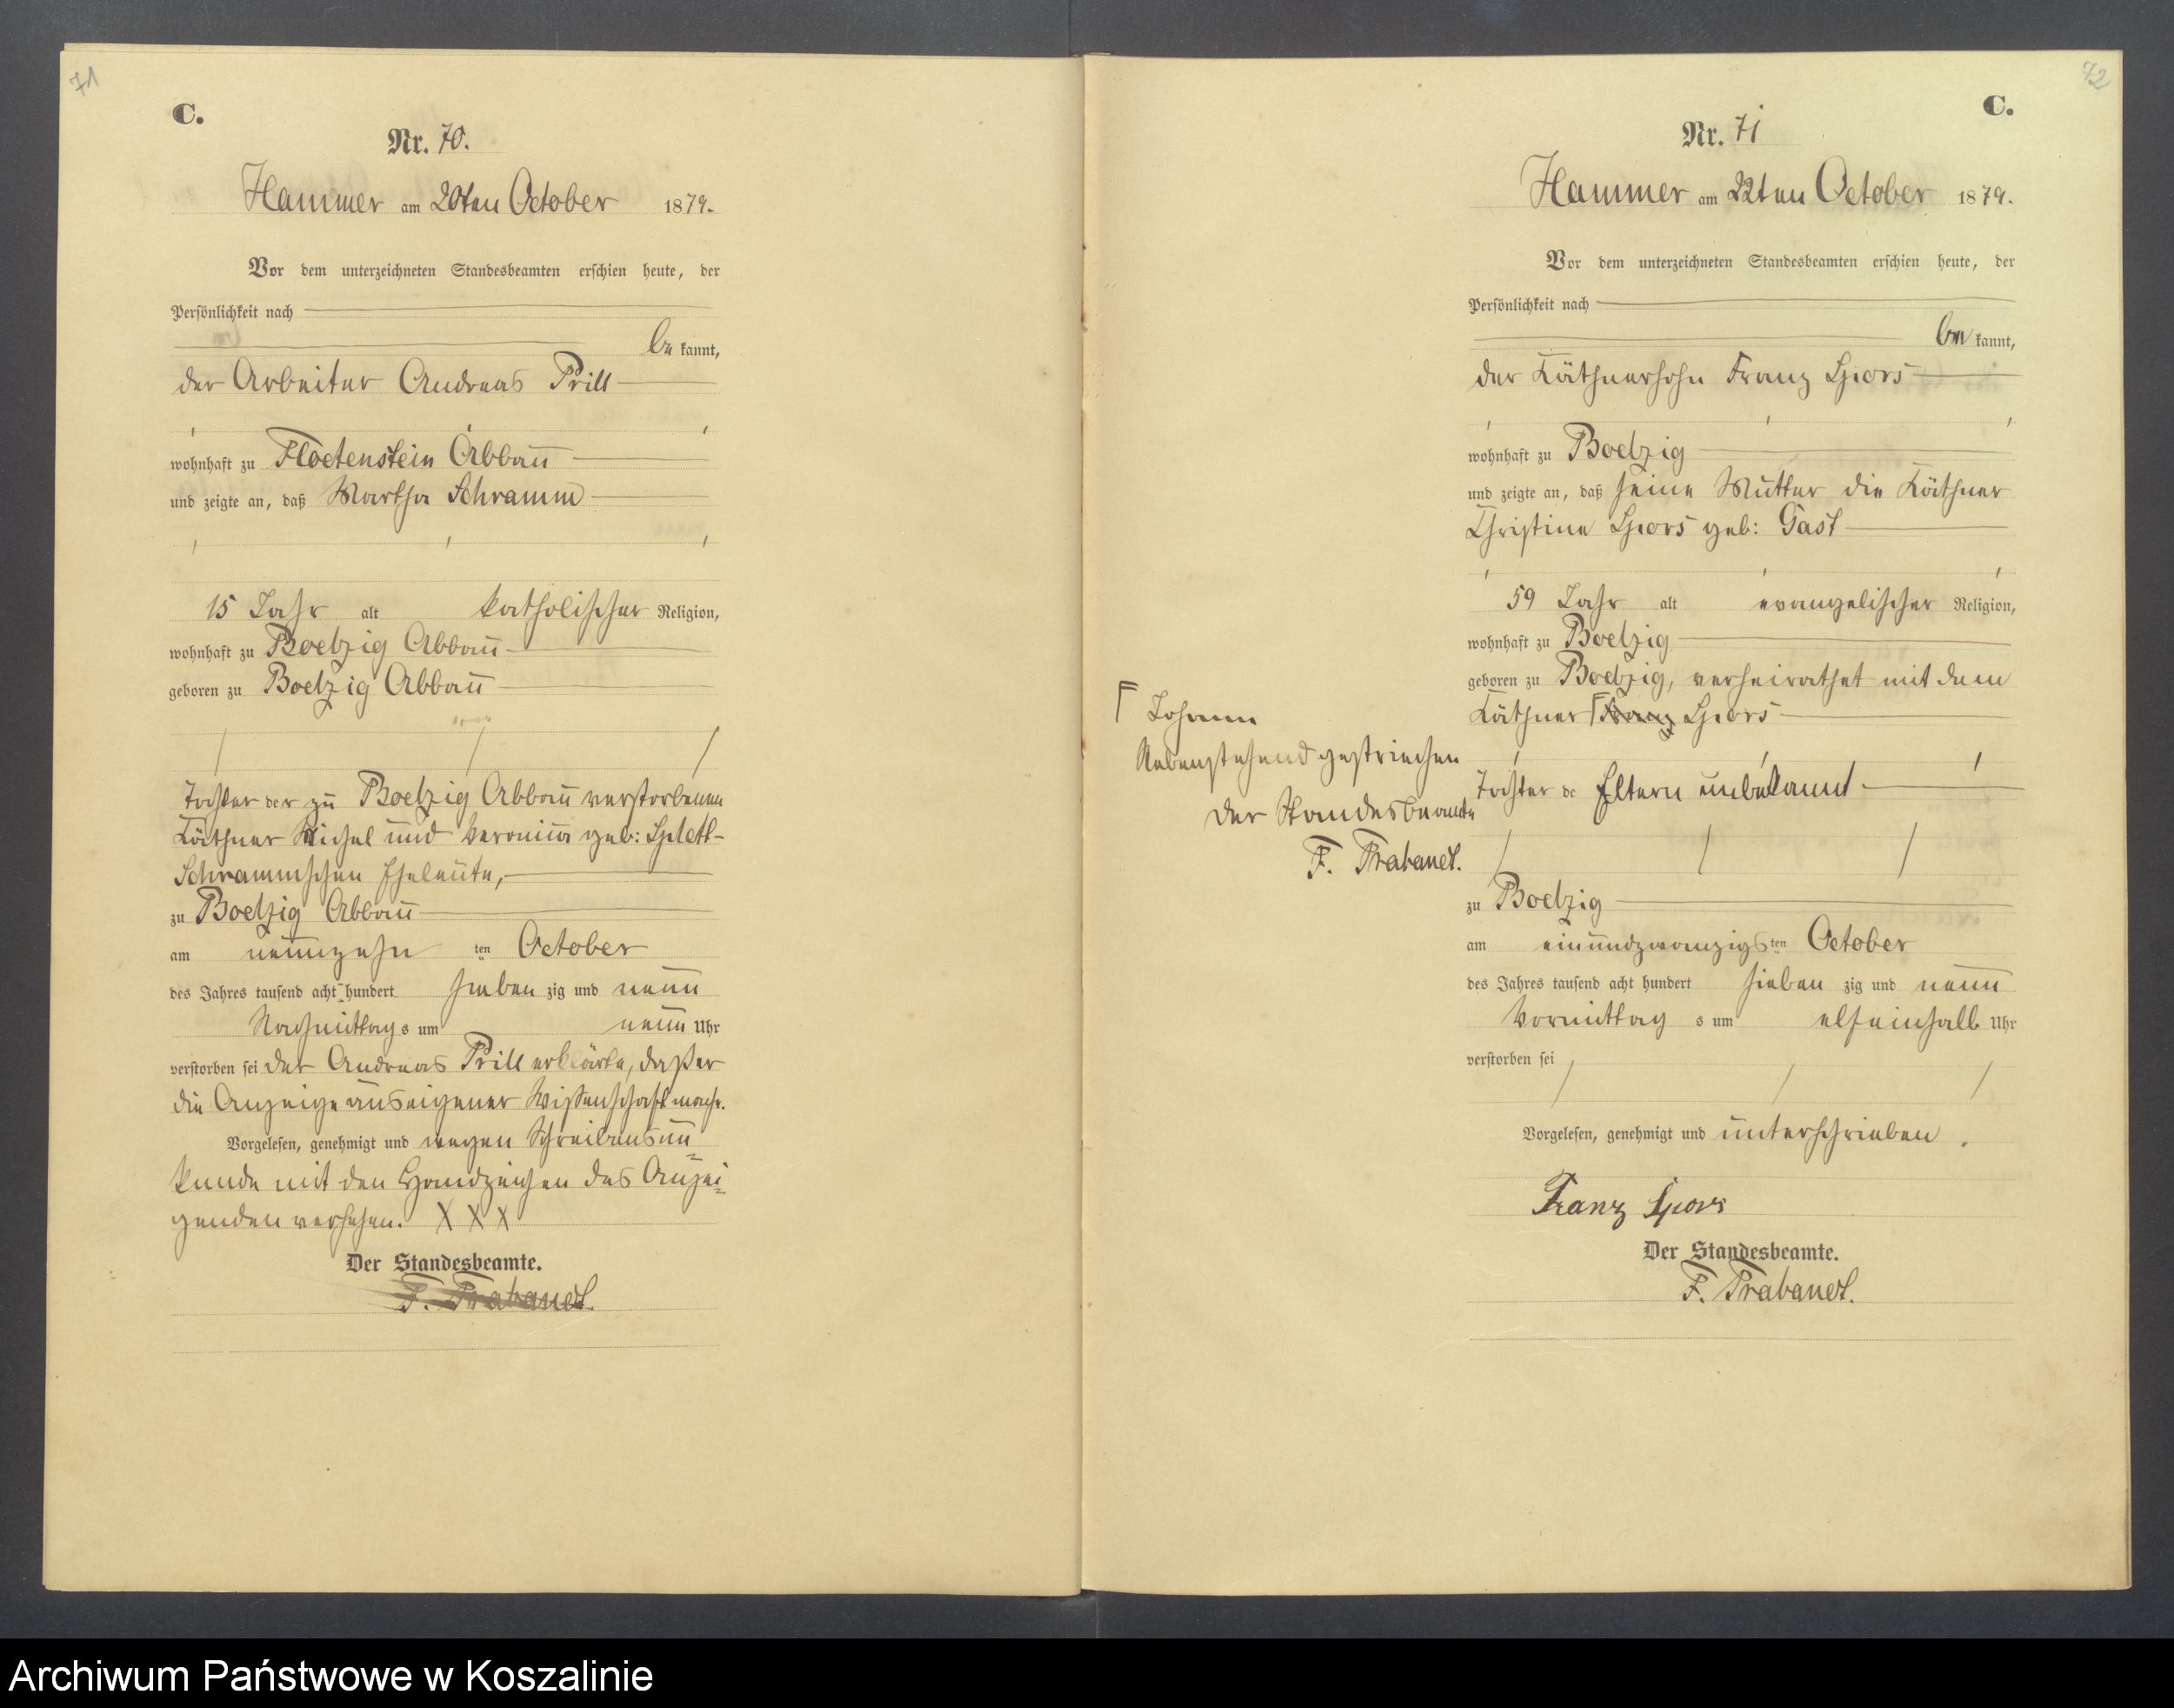 71
C.
Nr. 70.
Hammer am 20ten October 1879.
Vor dem unterzeichneten Standesbeamten erschien heute, der
Persönlichkeit nach
be kannt,
der Arbeiter Andreas Prill
wohnhaft zu Floetenstein Abbau
und zeigte an, daß Martha Schramm
15 Jahr alt katholischer Religion,
wohnhaft zu Boelzig Abbau
geboren zu Boelzig Abbau
Tochter der zu Boelzig Abbau verstorbenen
Käthner Michel und Veronica geb: Splett-
Schrammschen Eheleute,
zu Boelzig Abbau
am neunzehn ten October
des Jahres tausend acht hundert sieben zig und neun
Nachmittag s um neun Uhr
verstorben sei der Andreas Prill erklärte, daß er
die Anzeige aus eigener Wissenschaft mache.
Vorgelesen, genehmigt und wegen Schreibensun=
kunde mit den Handzeichen des Anzei=
genden versehen. X X X
Der Standesbeamte.
F. Trabandt.
72
C.
Nr. 71
Hammer am 22ten October 1879.
Vor dem unterzeichneten Standesbeamten erschien heute, der
Persönlichkeit nach
be kannt,
der Käthnersohn Franz Spors
wohnhaft zu Boelzig
und zeigte an, daß seine Mutter die Käthner
Christine Spors geb: Gast
59 Jahr alt evangelischer Religion,
wohnhaft zu Boelzig
geboren zu Boelzig, verheirathet mit dem
Käthner Γ Franz Spors
Γ Johann
Nebenstehend gestrichen
Der Standesbeamte
F. Trabandt.
Tochter de Eltern unbekannt
zu Boelzig
am einundzwanzigs ten October
des Jahres tausend acht hundert sieben zig und neun
Vormittag s um elfeinhalb Uhr
verstorben sei
Vorgelesen, genehmigt und unterschrieben.
Franz Spors
Der Standesbeamte.
F. Trabandt.
Archiwum Państwowe w Koszalinie